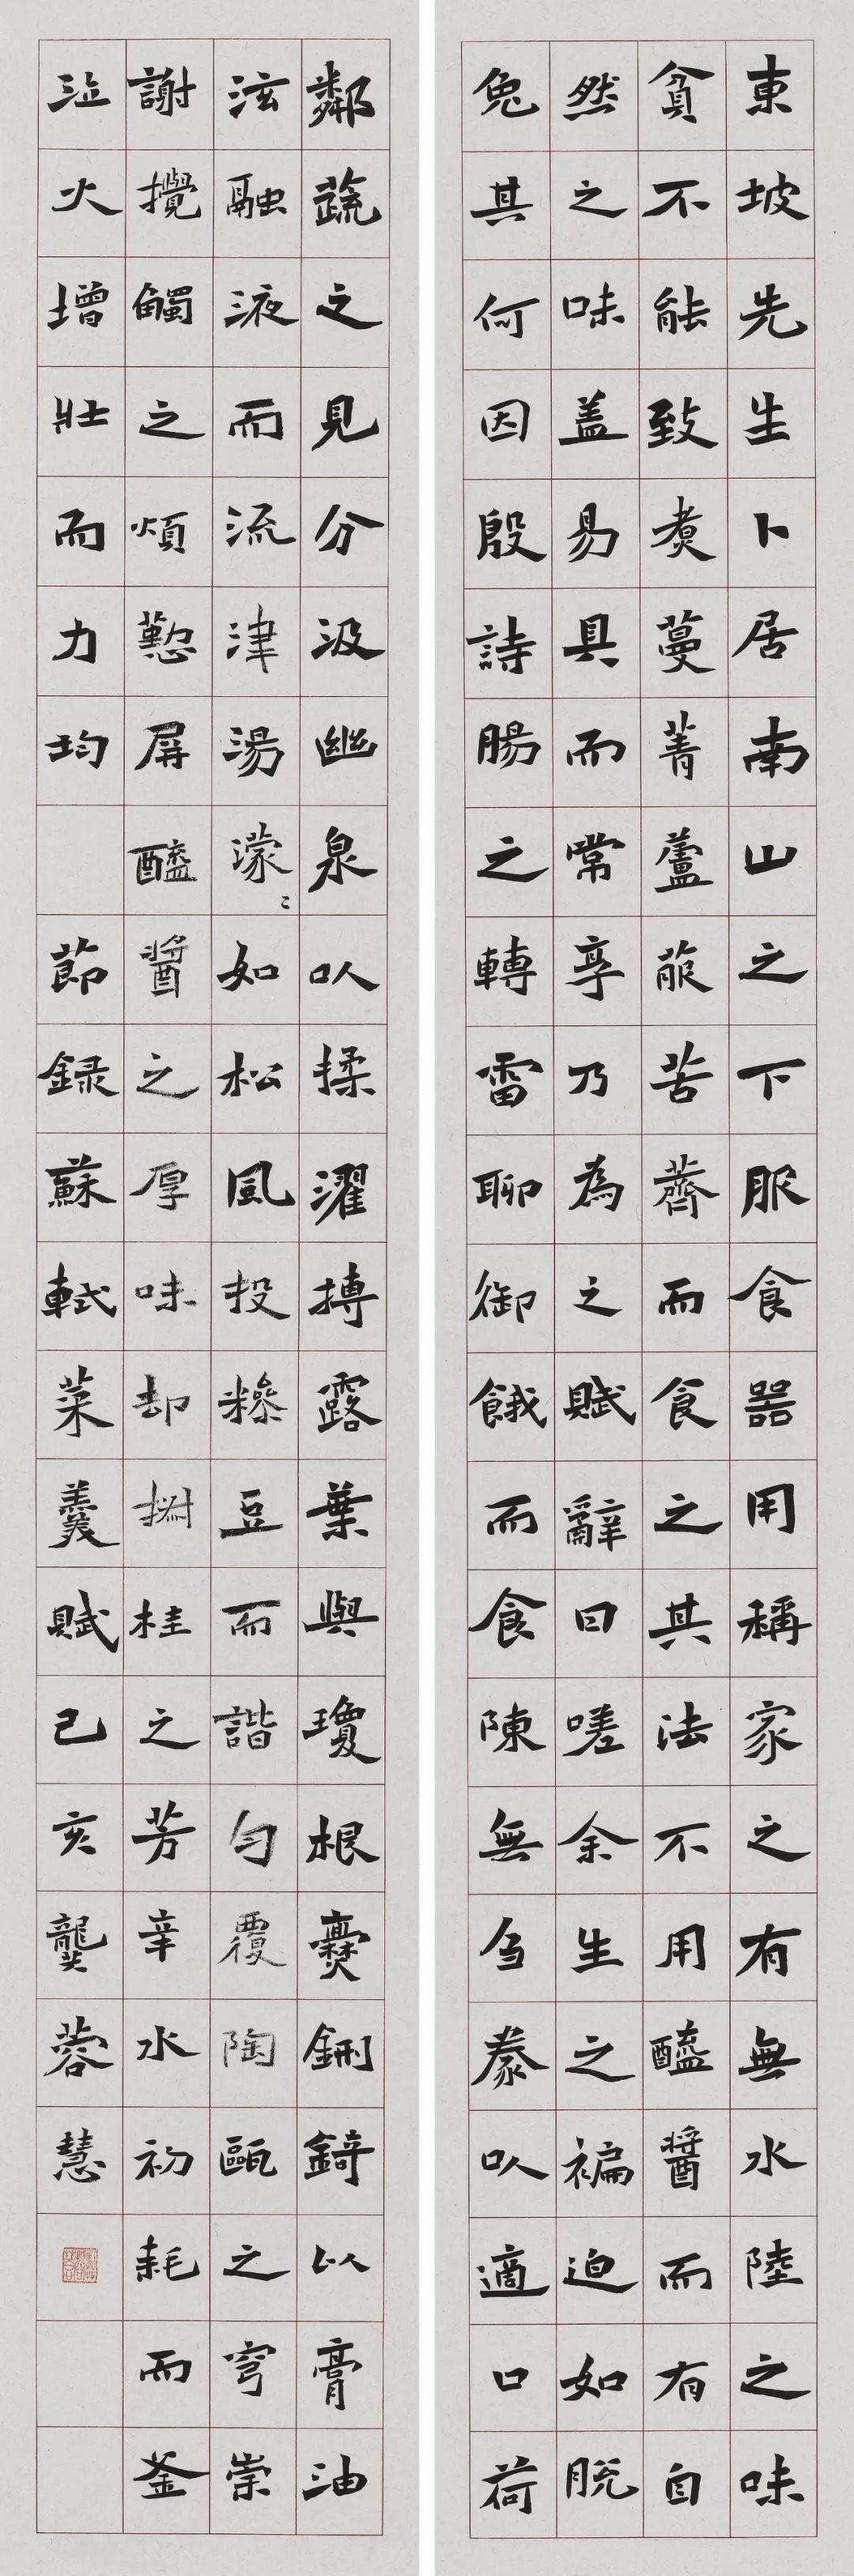 東坡先生卜居南山之下服食器用稱家之有無水陸之味
貧不能致煑蔓菁蘆菔苦薺而食之其法不用醯醬而有自
然之味盖易具而常享乃為之賦辭曰嗟余生之褊迫如脱
兔其何因殷詩腸之轉雷聊御餓而食陳無刍豢以適口荷
鄰蔬之見分汲幽泉以揉濯摶露葉與瓊根爨鉶錡以膏油
泫融液而流津湯濛〻如松風投糝豆而諧勻覆陶甌之穹崇
謝攪觸之煩懃屏醯醬之厚味却椒桂之芳辛水初耗而釜
泣火增壯而力均 節録蘇軾菜羹賦己亥龔蓉慧